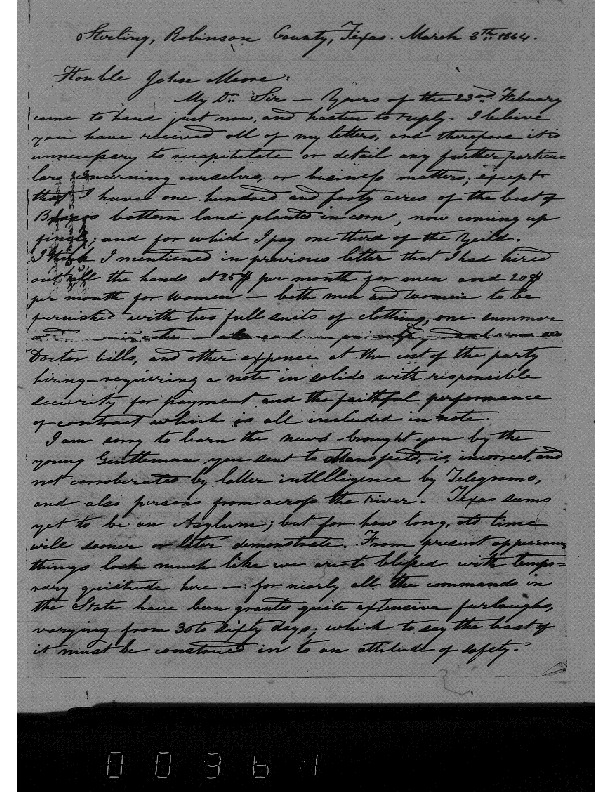 Sterling, Robinson County, Texas. March 8th 1864.
Honble John Moore:
My Dr. Sir — Yours of the 23rd February
came to hand just now, and hasten to reply. I believe
you have received all of my letters, and therefore it is
unnecessary to recapitulate or detail any further particu-
lars concerning ourselves, or business matters; except
that I have one hundred and forty acres of the best of
Brazos bottom land planted in corn, now coming up
finely; and for which I pay one third of the yield.
I think I mentioned in previous letter that I had hired
out all the hands at 25$ per month for men and 20$
per month for women — both men and women to be
furnished with two full suits of clothing, one summer
Doctor bills, and other expense at the cost of the party
hiring — requiring a note in solido with responsible
security for payment and the faithful performance
of contract which is all included in note.
I am sorry to learn the news brought you by the
young Gentleman you sent to Mansfield, is, incorrect, and
not corroberated by latter intlllegence by Telegrams,
and also persons from across the river. Texas seems
yet to be an Asylum; but for how long, its time
will sooner or later demonstrate. From present appearances
things look much like we are to blessed with tempo-
rary quietude here — for nearly all the commands in
the State have been granted quite extensive furloughs,
varying from 30 to sixty days; which to say the least of
it must be construed in to an attitude of safety.
00961